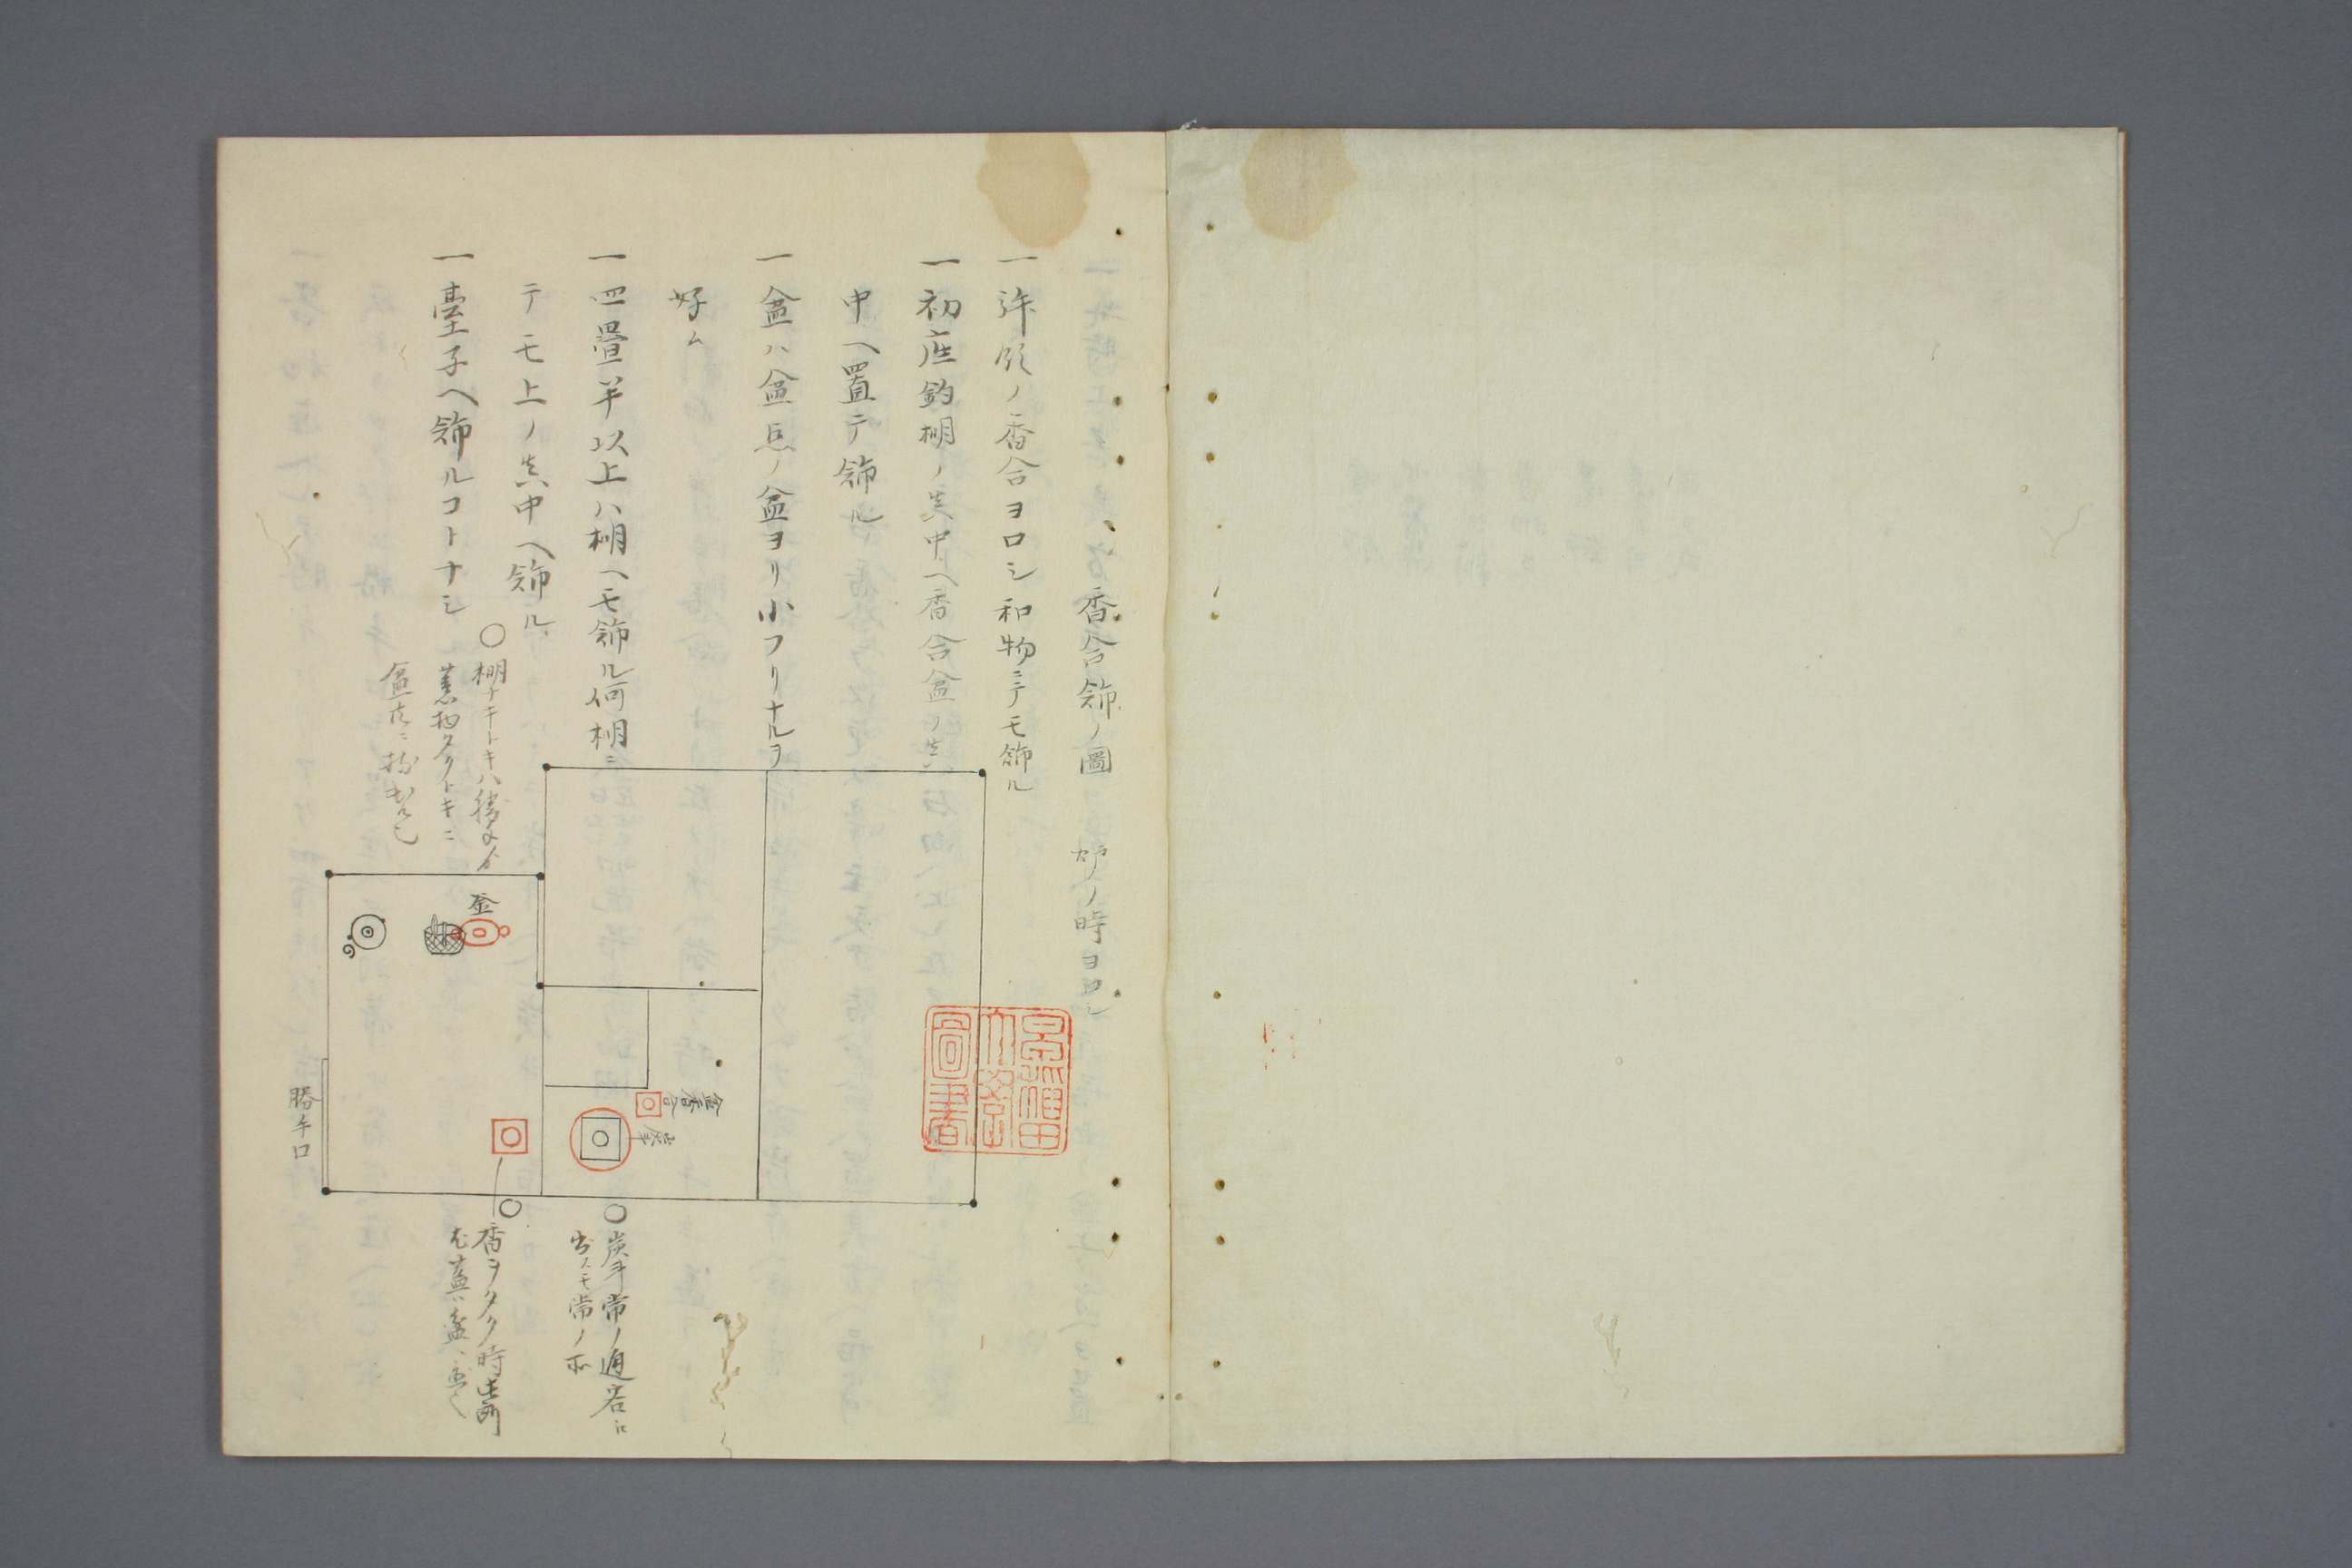 香合飾ノ圖　炉ノ時ヨロシ
一 拝領ノ香合ヨロシ和物ニテモ飾ル
一 初座釣棚ノ真中ヘ香合盆ノ真
中ヘ置テ飾ル
一 盆ハ盆点ノ盆ヨリ小フリナルヲ
好ム
一 四畳半以上ハ棚ヘモ飾ル何棚ニ
テモ上ノ真中ヘ飾ル
一 臺子ヘ飾ルコトナシ
○棚ナキトキハ勝手ヨリ
薫物タクトキニ
盆共ニ持出ル也
釜
盆香合
炭斗
勝手口
○炭斗常ノ通客ニ
出スモ常ノ
○香ヲタク時此所